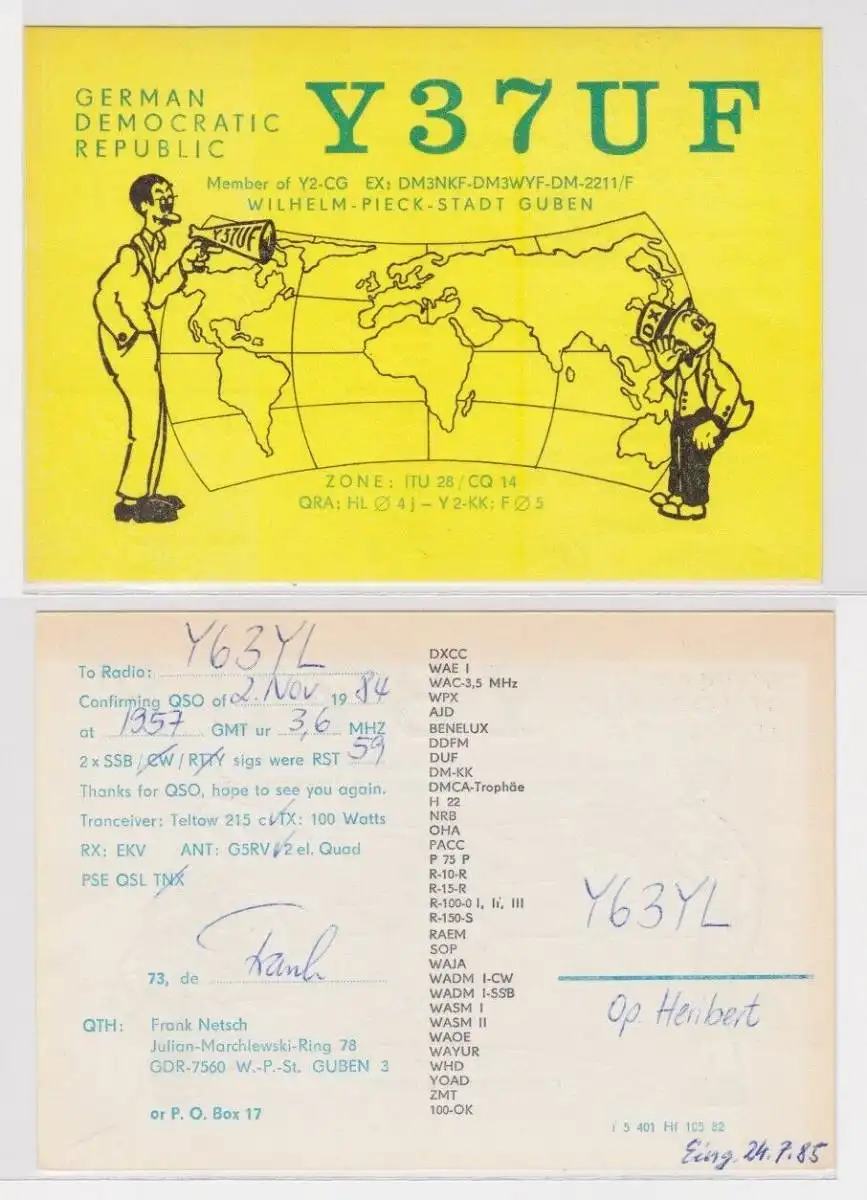 GERMAN
DEMOCRATIC
REPUBLIC
Y37UF
Member of Y2-CG EX: DM3NKF-DM3WYF-DM-2211/F
WILHELM-PIECK-STADT GUBEN
Y37UF
DX
ZONE: ITU 28/CQ 14
QRA: HL Ø 4 j – Y 2-KK: F Ø 5
To Radio: Y63YL
Confirming QSO of 2. Nov 19 84
at 1957 GMT ur 3,6 MHZ
2 x SSB / CW / RTTY sigs were RST 59
Thanks for QSO, hope to see you again.
Tranceiver: Teltow 215 c TX: 100 Watts
RX: EKV ANT: G5RV 2 el. Quad
PSE QSL TNX
73, de Frank
QTH: Frank Netsch
Julian-Marchlewski-Ring 78
GDR-7560 W.-P.-St. GUBEN 3
or P. O. Box 17
DXCC
WAE I
WAC-3,5 MHz
WPX
AJD
BENELUX
DDFM
DUF
DM-KK
DMCA-Trophäe
H 22
NRB
OHA
PACC
P 75 P
R-10-R
R-15-R
R-100-0 I, II, III
R-150-S
RAEM
SOP
WAJA
WADM I-CW
WADM I-SSB
WASM I
WASM II
WAOE
WAYUR
WHD
YOAD
ZMT
100-OK
Y63YL
Op. Heribert
5 401 Hf 105 82
Eing. 24.7.85